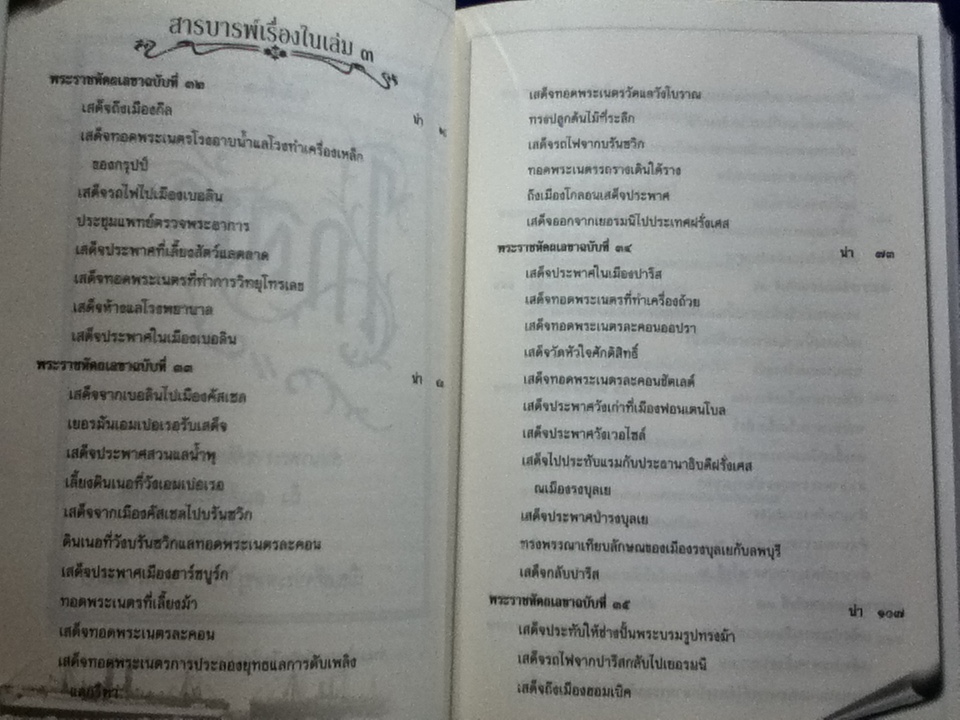 สารบารพ์เรื่องในเล่ม ๓
พระราชหัตถเลขาฉบับที่ ๓๒ น่า
เสด็จถึงเมืองกีล
เสด็จทอดพระเนตรโรงอาบน้ำแลโรงทำเครื่องเหล็ก
ของกรุปป์
เสด็จรถไฟไปเมืองเบอลิน
ประชุมแพทย์ตรวจพระอาการ
เสด็จประพาศที่เลี้ยงสัตว์แลตลาด
เสด็จทอดพระเนตรที่ทำการวิทยุโทรเลข
เสด็จห้างแลโรงพยาบาล
เสด็จประพาศในเมืองเบอลิน
พระราชหัตถเลขาฉบับที่ ๓๓ น่า
เสด็จจากเบอลินไปเมืองคัสเซล
เยอรมันเอมเปอเรอรับเสด็จ
เสด็จประพาศสวนแลน้ำพุ
เลี้ยงดินเนอที่วังเอมเปอเรอ
เสด็จจากเมืองคัสเซลไปบรันซวิก
ดินเนอที่วังบรันซวิกแลทอดพระเนตรละคอน
เสด็จประพาศเมืองฮาร์ซบูร์ก
ทอดพระเนตรที่เลี้ยงม้า
เสด็จทอดพระเนตรละคอน
เสด็จทอดพระเนตรการประลองยุทธแลการดับเพลิง
เสด็จทอดพระเนตรวัดแลวังโบราณ
ทรงปลูกต้นไม้ที่ระลึก
เสด็จรถไฟจากบรันซวิก
ทอดพระเนตรรถรางเดินใต้ราง
ถึงเมืองโกลอนเสด็จประพาศ
เสด็จออกจากเยอรมนีไปประเทศฝรั่งเศส
พระราชหัตถเลขาฉบับที่ ๓๔ น่า ๗๓
เสด็จประพาศในเมืองปารีส
เสด็จทอดพระเนตรที่ทำเครื่องถ้วย
เสด็จทอดพระเนตรละคอนออปรา
เสด็จวัดหัวใจศักดิสิทธิ์
เสด็จทอดพระเนตรละคอนชัตเลต์
เสด็จประพาศวังเก่าที่เมืองฟอนเตนโบล
เสด็จประพาศวังเวอไซล์
เสด็จไปประทับแรมกับประธานาธิบดีฝรั่งเศส
ณเมืองรงบุลเย
เสด็จประพาศป่ารงบุลเย
ทรงพรรณาเทียบลักษณของเมืองรงบุลเยกับลพบุรี
เสด็จกลับปารีส
พระราชหัตถเลขาฉบับที่ ๓๕ น่า ๑๐๗
เสด็จประทับให้ช่างปั้นพระบรมรูปทรงม้า
เสด็จรถไฟจากปารีสกลับไปเยอรมนี
เสด็จถึงเมืองฮอมเบิค